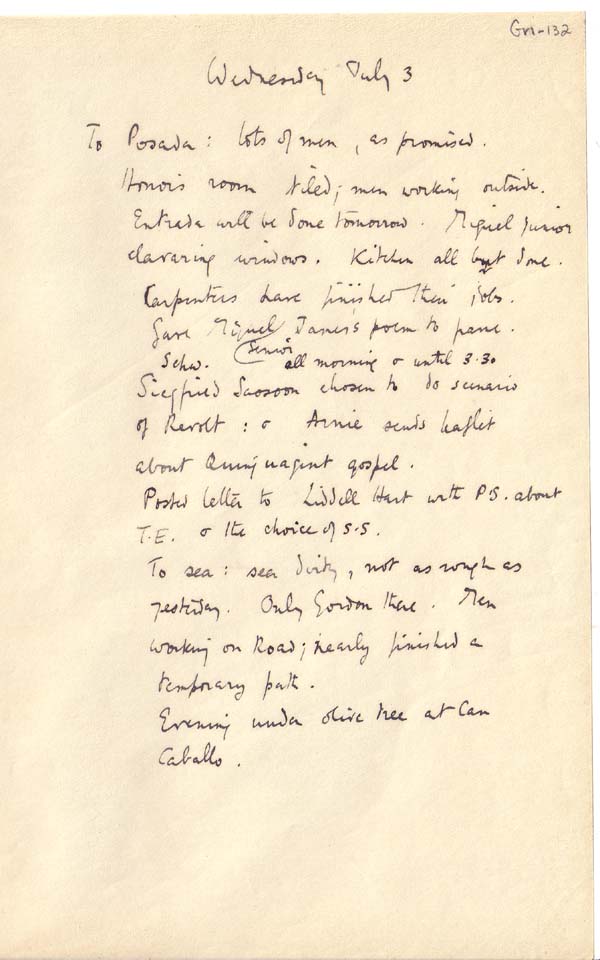 GRI-132
Wednesday July 3
To Posada: lots of men, as promised.
Honor's room tiled; men working outside.
Entrada will be done tomorrow. Miguel junior
clavaring windows. Kitchen all but done.
Carpenters have finished their jobs.
Gave Miguel James's poem to
senior
Schw. all morning & until 3.30
Siegfried Sassoon chosen to do scenario
of Revolt: & Arnie sends leaflet
about Quinquagint gospel.
Posted letter to Liddell Hart with P.S. about
T.E. & the choice of S.S.
To sea: sea dirty, not as rough as
yesterday. Only Gordon there. Men
working on Road; nearly finished a
temporary path.
Evening under olive tree at Can
Caballo.